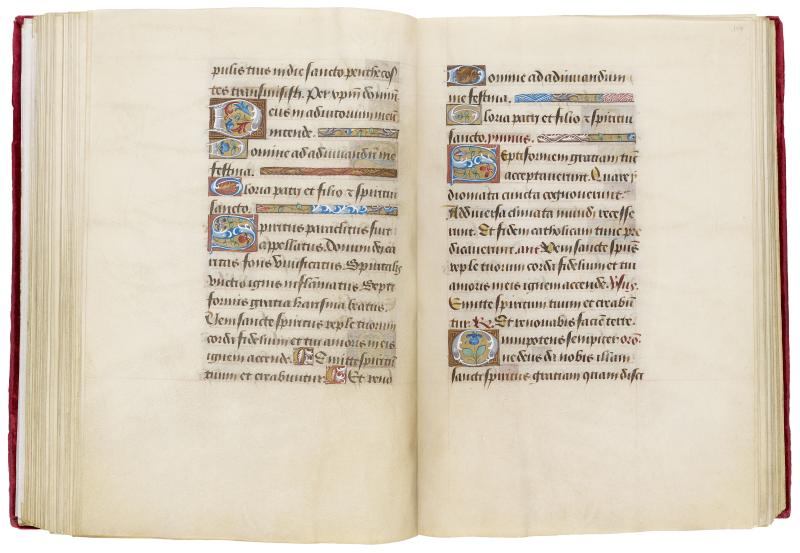 pulis tuis in die sancto penthecos
tes transmisisti. Per xpm dominu
Deus in adiutorium meu
intende.
Domine ad adiuuandu me
festina.
Gloria patri et filio et spiritui
sancto.
Spiritus paraclitus fuit
appellatus. Donum dei ca
ritas fons viuificatus. Spiritalis
vnctio ignis inflamatus. Septi
formis gratia karisma beatus.
Veni sancte spiritus reple tuorum
cordi fidelium et tui amoris in eis
ignem accende. Emitte spiritu
tuum et creabuntur. Et reno
Domine ad adiuuandum
me festina.
Gloria patri et filio et spiritui
sancto. ymnus.
Septiformem gratiam tuc
acceptauerunt. Quare y
diomata cuncta cognouerunt.
Ad diuersa climata mundi recesse
runt. Et fidem catholicam tunc pre
dicauerunt. ant. Veni sancte spus
reple tuorum cordi fidelium et tui
amoris in eis ignem accende. Vsus.
Emitte spiritum tuum et creabu
tur. R. Et renouabis faciem terre.
Omnipotens sempiter oro.
ne deus da nobis illam
sancti spiritus gratiam quam disci